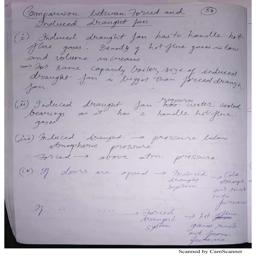 Comparison between Forced and
Induced draught fan
(i) Induced draught fan has to handle hot
flue gases. Density of hot flue gases is low
and volume increases
→ For same capacity boiler, size of induced
draught fan is bigger than forced draught
fan
(ii) Induced draught fan requires water cooled
bearings as it has to handle hot flue
gases
(iii) Induced draught → pressure below
atmospheric pressure
Forced → above atm pressure
(iv) If doors are opened → Induced
draught
system
→ Cold
If → Forced
draught
system
→ hot
gases
Scanned by CamScanner